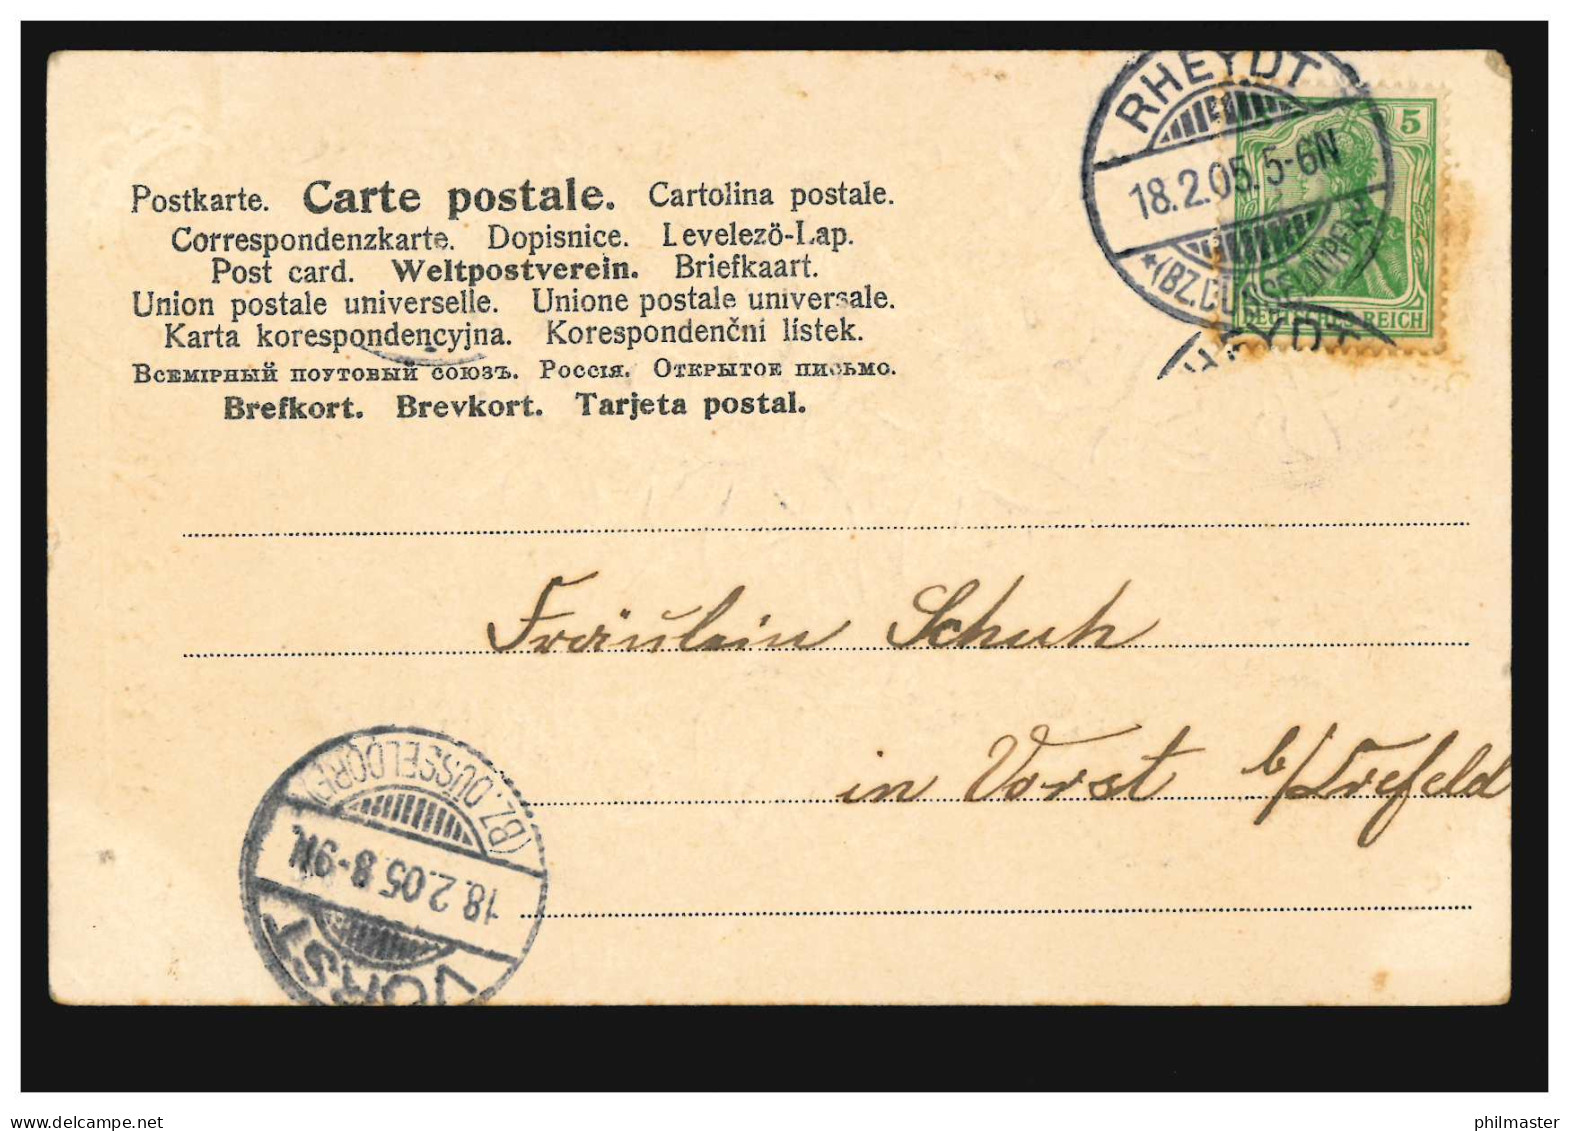 RHEYDT
18.2.05. 5-6N
*(BZ. DÜSSELDORF)
5
DEUTSCHES REICH
Postkarte. Carte postale. Cartolina postale.
Correspondenzkarte. Dopisnice. Levelezö-Lap.
Post card. Weltpostverein. Briefkaart.
Union postale universelle. Unione postale universale.
Karta korespondencyjna. Korespondenčni lístek.
Всемірный поутовый союзъ. Россія. Открытое письмо.
Brefkort. Brevkort. Tarjeta postal.
Fräulein Schuh
in Vorst b/Crefeld
VORST
18.2.05 8-9N.
(BZ. DÜSSELDORF)
philmaster
delcampe.net